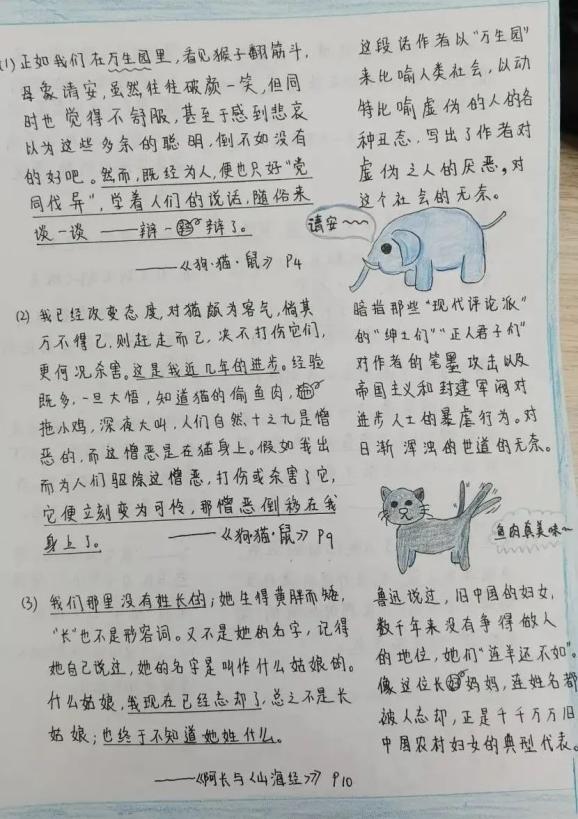 (1) 正如我们在万生园里,看见猴子翻筋斗,
母象请安,虽然往往破颜一笑,但同
时也觉得不舒服,甚至于感到悲哀
以为这些多余的聪明,倒不如没有
的好吧。然而,既经为人,便也只好“党
同伐异”,学着人们的说话,随俗来
谈一谈——辩一辩了。
——《狗·猫·鼠》 P4
这段话作者以“万生园”
来比喻人类社会,以动
特比喻虚伪的人的各
种丑态,写出了作者对
虚伪之人的厌恶,对
这个社会的无奈。
请安~~
(2) 我已经改变态度,对猫颇为客气,倘其
万不得已,则赶走而已,决不打伤它们,
更何况杀害。这是我近几年的进步。经验
既多,一旦大悟,知道猫的偷鱼肉,
拖小鸡,深夜大叫,人们自然十之九是憎
恶的,而这憎恶是在猫身上。假如我出
而为人们驱除这憎恶,打伤或杀害了它,
它便立刻变为可怜,那憎恶倒移在我
身上了。 ——《狗·猫·鼠》 P9
暗指那些“现代评论派”
的“绅士们”“正人君子们”
对作者的笔墨攻击以及
帝国主义和封建军阀对
进步人士的暴虐行为。对
日渐浑浊的世道的无奈。
鱼肉真美味~
(3) 我们那里没有姓长的;她生得黄胖而矮,
“长”也不是形容词。又不是她的名字,记得
她自己说过,她的名字是叫作什么姑娘的。
什么姑娘,我现在已经忘却了,总之不是长
姑娘;也终于不知道她姓什么。
——《阿长与《山海经》》 P10
鲁迅说过,旧中国的妇女,
数千年来没有争得做人
的地位,她们“连羊还不如”。
像这位长妈妈,连姓名都
被人忘却,正是千千万万旧
中国农村妇女的典型代表。